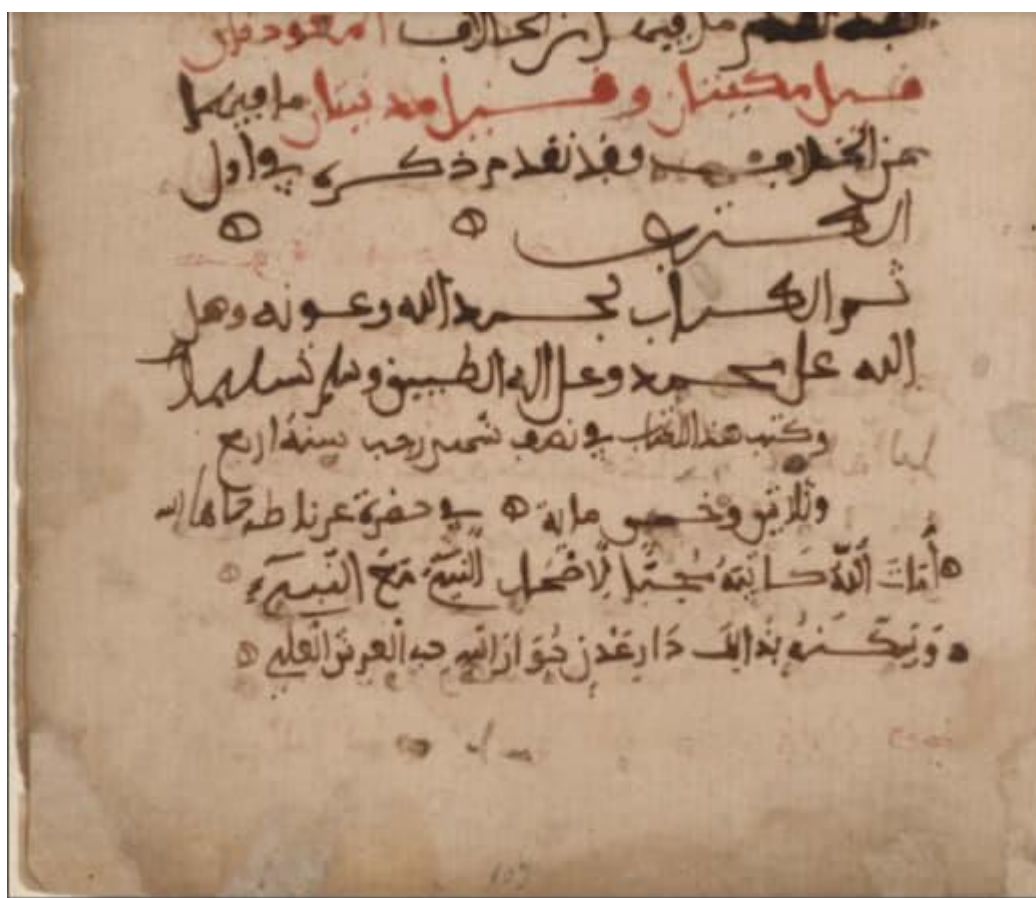 ما فيهما من الخلاف المعوذتان
قيل مكيتان وقيل مدنيتان ما فيهما
من الخلاف وقد تقدم ذكره في أول
الكتاب
تم الكتاب بحمد الله وعونه وصلى
الله على محمد وعلى اله الطيبين وسلم تسليما
وكتب هذا الكتاب في نصف شهر رجب سنة اربع
وثلاثين وخمس ماية في حضرة غرناطة حماها الله
أمات الله كاتبه محبا لأصحاب النبي مع النبي
ويسكنه بذاك دار عدن جوار الله في العرش العلي
157